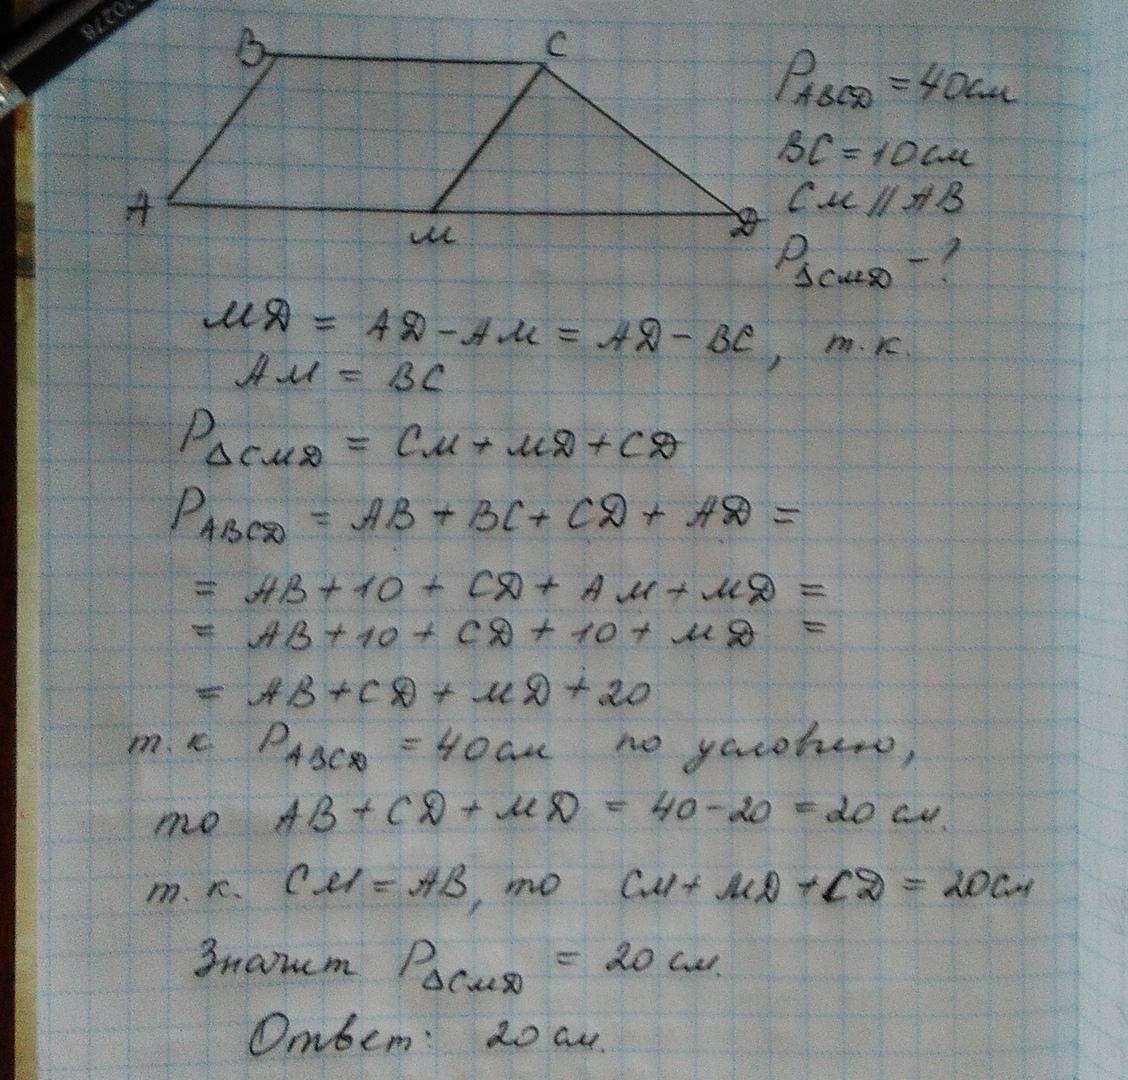 20278
B C
A M D
P_ABCD = 40см
BC = 10см
CM || AB
P_ΔCMD - ?
MD = AD - AM = AD - BC, т.к.
AM = BC
P_ΔCMD = CM + MD + CD
P_ABCD = AB + BC + CD + AD =
= AB + 10 + CD + AM + MD =
= AB + 10 + CD + 10 + MD =
= AB + CD + MD + 20
т.к. P_ABCD = 40см по условию,
то AB + CD + MD = 40 - 20 = 20 см.
т.к. CM = AB, то CM + MD + CD = 20см
Значит P_ΔCMD = 20 см.
Ответ: 20 см.